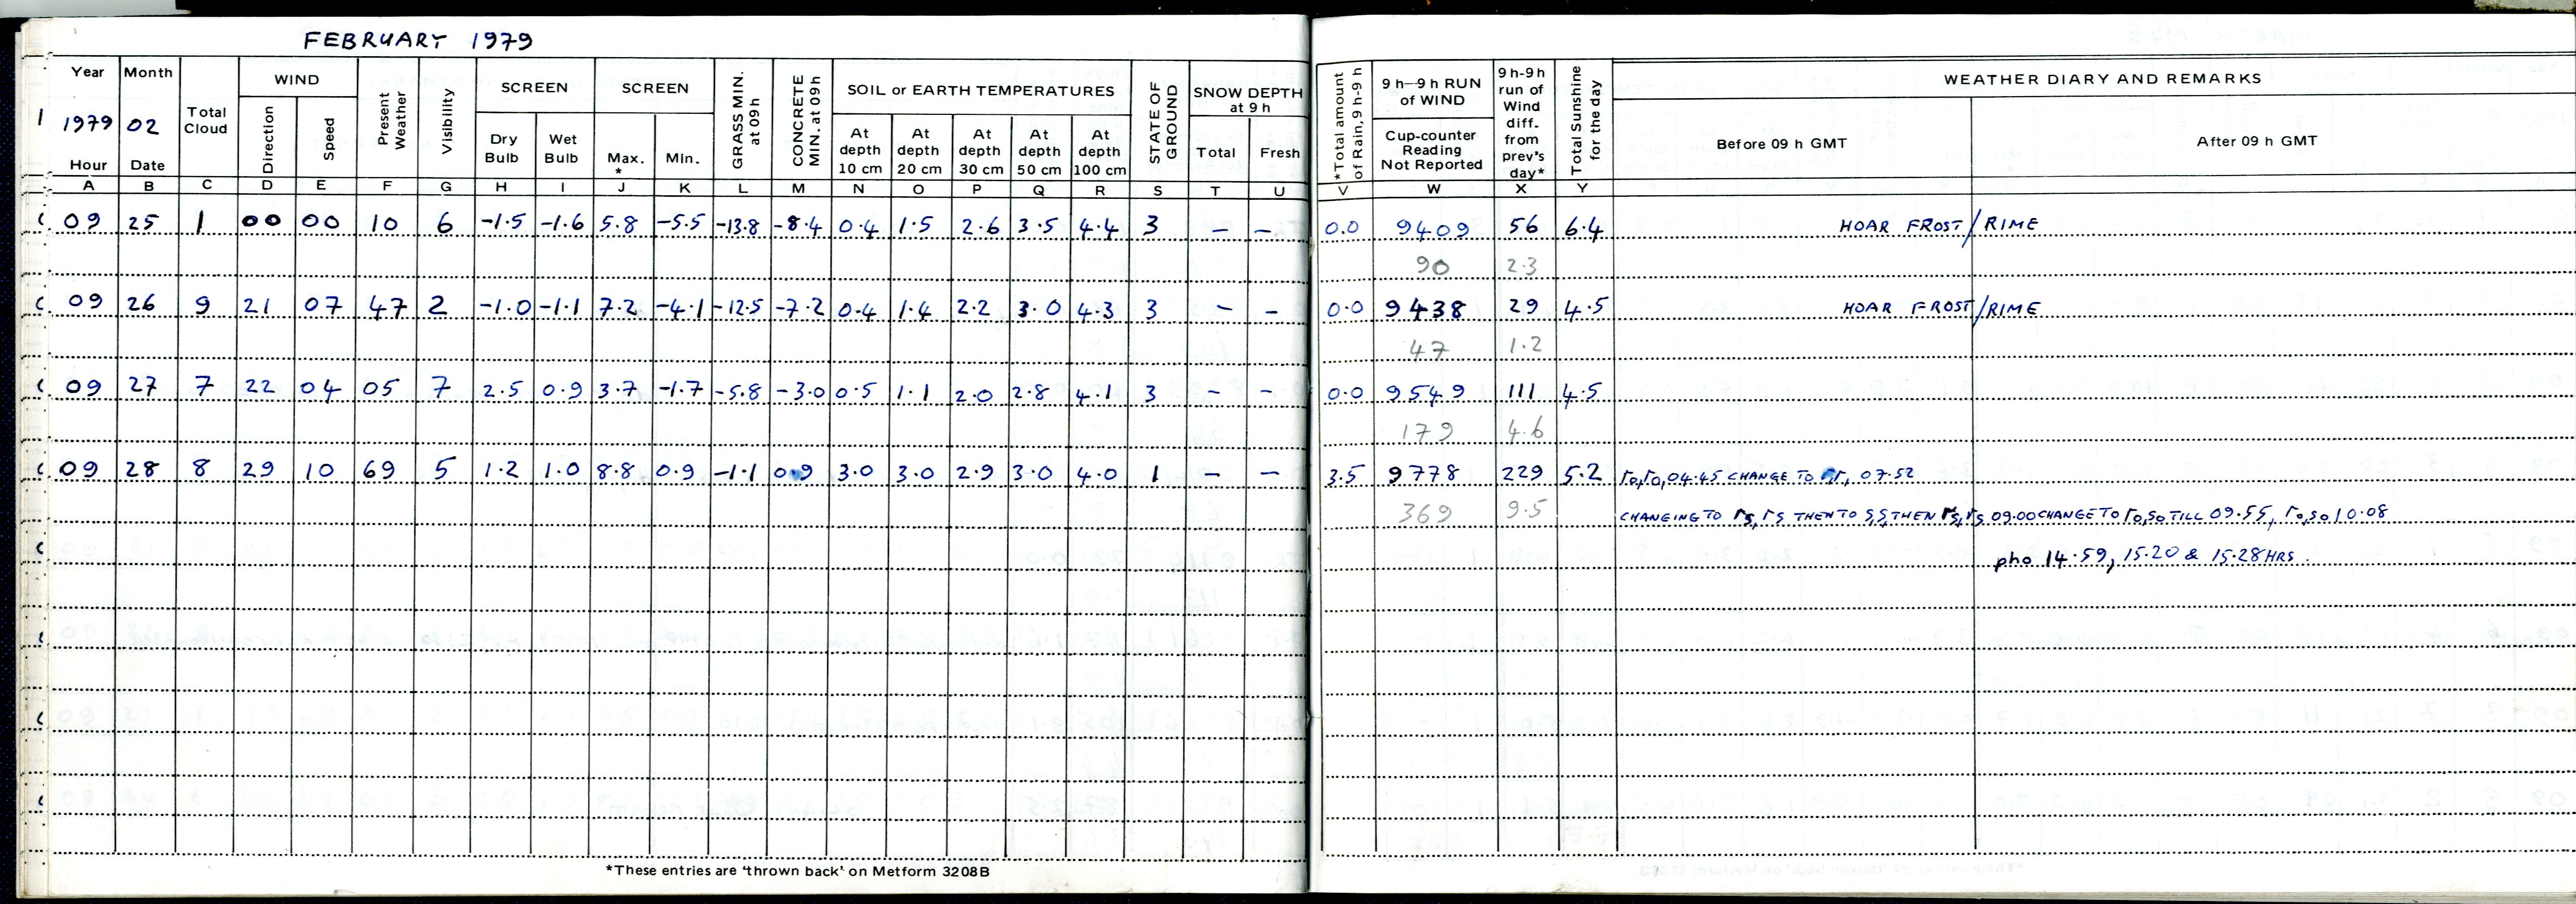 FEBRUARY 1979
Year Month Total Cloud WIND Present Weather Visibility SCREEN SCREEN GRASS MIN. at 09h CONCRETE MIN. at 09h SOIL or EARTH TEMPERATURES STATE OF GROUND SNOW DEPTH at 9 h *Total amount of Rain, 9 h-9 h 9 h—9 h RUN of WIND 9 h-9 h run of Wind diff. from prev's day* Total Sunshine for the day WEATHER DIARY AND REMARKS
1 1979 02 Direction Speed Dry Bulb Wet Bulb Max. * Min. At depth 10 cm At depth 20 cm At depth 30 cm At depth 50 cm At depth 100 cm Total Fresh Cup-counter Reading Not Reported Before 09 h GMT After 09 h GMT
Hour Date
A B C D E F G H I J K L M N O P Q R S T U V W X Y
09 25 1 00 00 10 6 -1.5 -1.6 5.8 -5.5 -13.8 -8.4 0.4 1.5 2.6 3.5 4.4 3 – – 0.0 9409 56 6.4 HOAR FROST/RIME
90 2.3
09 26 9 21 07 47 2 -1.0 -1.1 7.2 -4.1 -12.5 -7.2 0.4 1.4 2.2 3.0 4.3 3 – – 0.0 9438 29 4.5 HOAR FROST/RIME
47 1.2
09 27 7 22 04 05 7 2.5 0.9 3.7 -1.7 -5.8 -3.0 0.5 1.1 2.0 2.8 4.1 3 – – 0.0 9549 111 4.5
179 4.6
09 28 8 29 10 69 5 1.2 1.0 8.8 0.9 -1.1 0.9 3.0 3.0 2.9 3.0 4.0 1 – – 3.5 9778 229 5.2 ro,ro, 04.45 CHANGE TO r, 07.52
369 9.5 CHANGING TO rs, rs THEN TO s,s, THEN rs, rs 09.00 CHANGE TO ro,so TILL 09.55, ro,so 10.08
pho 14.59, 15.20 & 15.28 HRS.
*These entries are 'thrown back' on Metform 3208B